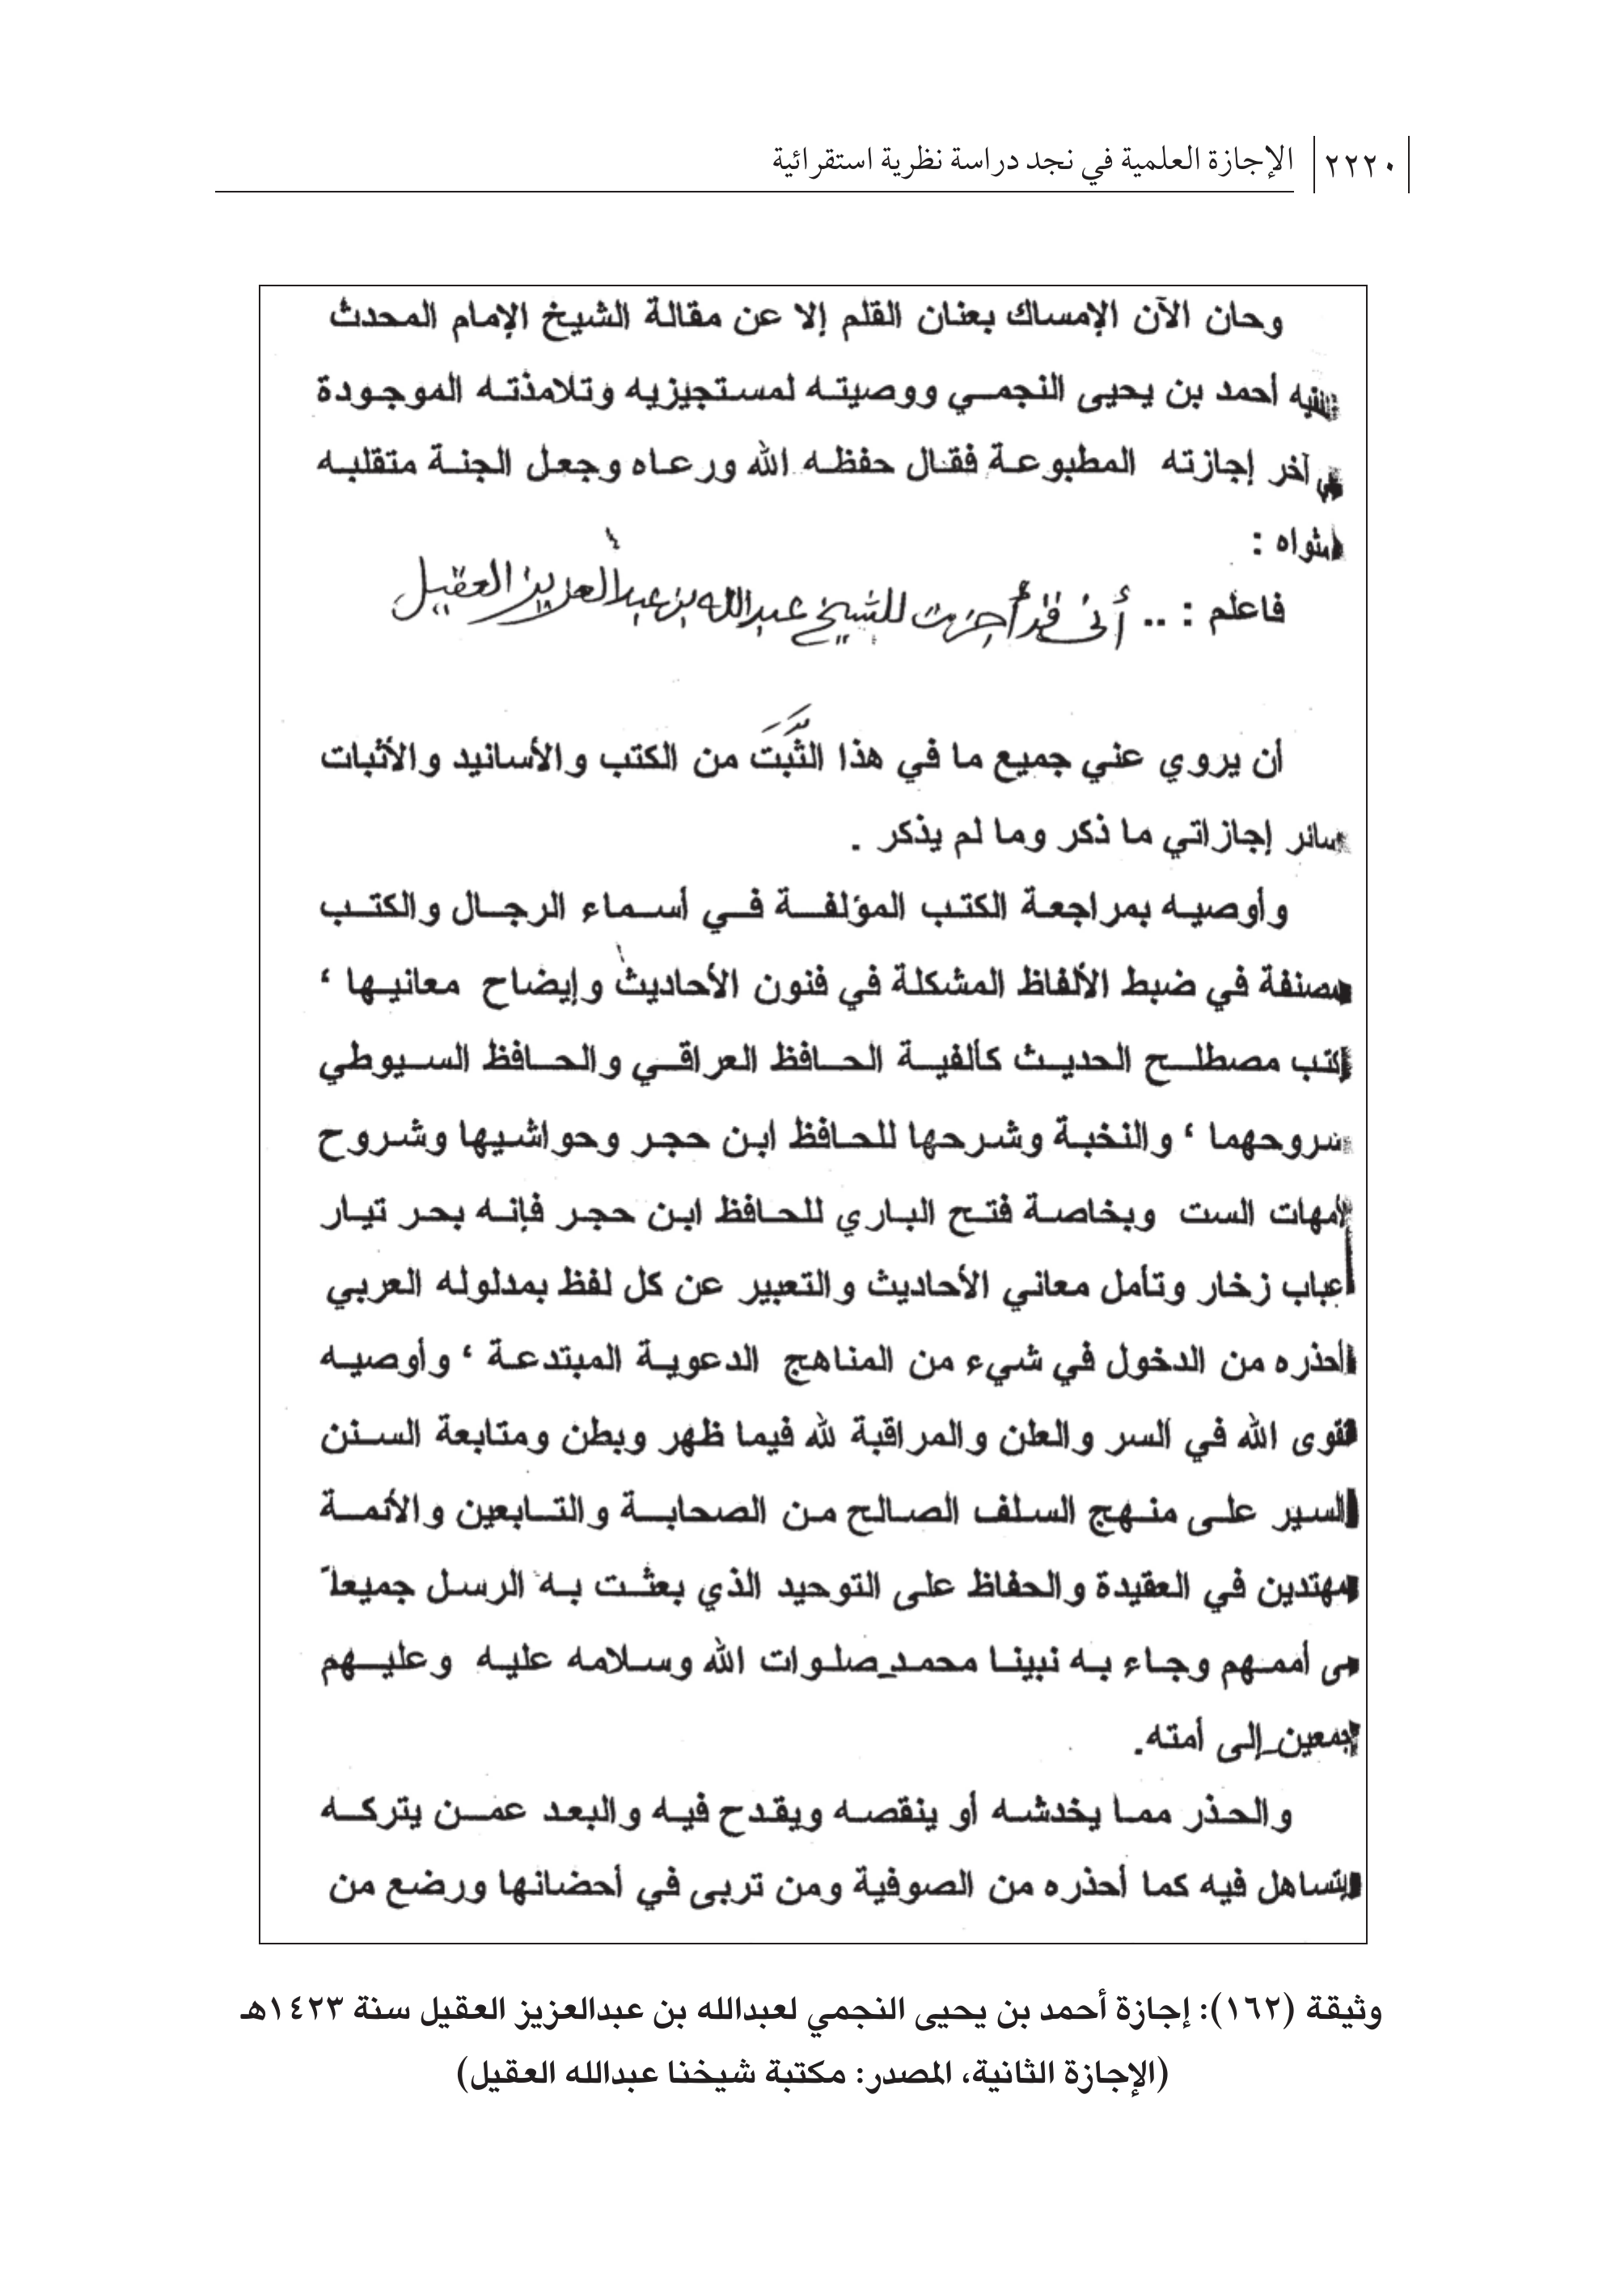 ٢٢٢٠ الإجازة العلمية في نجد دراسة نظرية استقرائية
وحان الآن الإمساك بعنان القلم إلا عن مقالة الشيخ الإمام المحدث
أحمد بن يحيى النجمي ووصيته لمستجيزيه وتلامذته الموجودة
آخر إجازته المطبوعة فقال حفظه الله ورعاه وجعل الجنة متقلبه
مثواه :
فاعلم : .. أني قد أجزت للشيخ عبدالله بن عبدالعزيز العقيل
أن يروي عني جميع ما في هذا الثَّبَتَ من الكتب والأسانيد والأثبات
سائر إجازاتي ما ذكر وما لم يذكر .
وأوصيه بمراجعة الكتب المؤلفة في أسماء الرجال والكتب
مصنفة في ضبط الألفاظ المشكلة في فنون الأحاديث وإيضاح معانيها ،
كتب مصطلح الحديث كألفية الحافظ العراقي والحافظ السيوطي
شروحهما ، والنخبة وشرحها للحافظ ابن حجر وحواشيها وشروح
لأمهات الست وبخاصة فتح الباري للحافظ ابن حجر فإنه بحر تيار
عباب زخار وتأمل معاني الأحاديث والتعبير عن كل لفظ بمدلوله العربي
أحذره من الدخول في شيء من المناهج الدعوية المبتدعة ، وأوصيه
تقوى الله في السر والعلن والمراقبة لله فيما ظهر وبطن ومتابعة السنن
السير على منهج السلف الصالح من الصحابة والتابعين والأئمة
مهتدين في العقيدة والحفاظ على التوحيد الذي بعثت به الرسل جميعاً
أممهم وجاء به نبينا محمد صلوات الله وسلامه عليه وعليهم
جمعين إلى أمته.
والحذر مما يخدشه أو ينقصه ويقدح فيه والبعد عمن يتركه
يتساهل فيه كما أحذره من الصوفية ومن تربى في أحضانها ورضع من
وثيقة (١٦٢): إجازة أحمد بن يحيى النجمي لعبدالله بن عبدالعزيز العقيل سنة ١٤٢٣هـ
(الإجازة الثانية، المصدر: مكتبة شيخنا عبدالله العقيل)